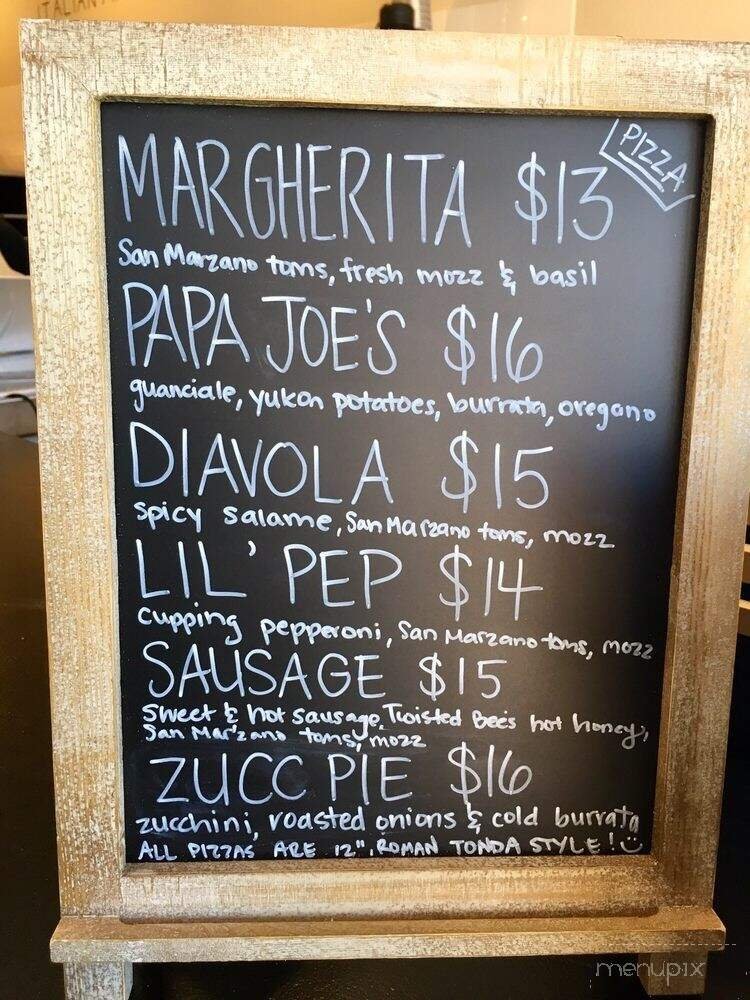 ITALIAN
PIZZA
MARGHERITA $13
San Marzano toms, fresh mozz & basil
PAPA JOE'S $16
guanciale, yukon potatoes, burrata, oregano
DIAVOLA $15
spicy salame, San Marzano toms, mozz
LIL' PEP $14
cupping pepperoni, San Marzano toms, mozz
SAUSAGE $15
sweet & hot sausage, Twisted Bee's hot honey,
San Marzano toms, mozz
ZUCC PIE $16
zucchini, roasted onions & cold burrata
ALL PIZZAS ARE 12", ROMAN TONDA STYLE!
menupix